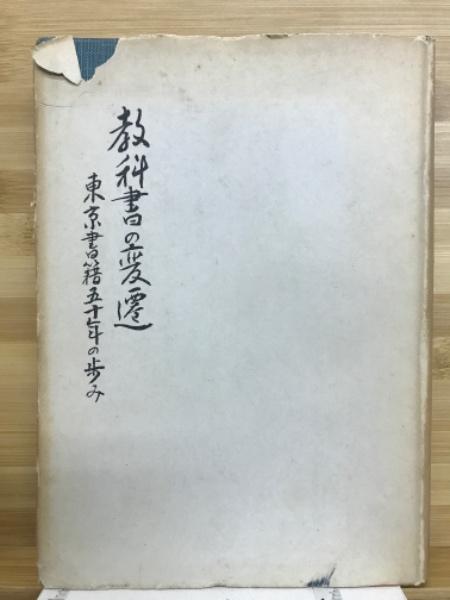 教科書の変遷
東京書籍五十年の歩み